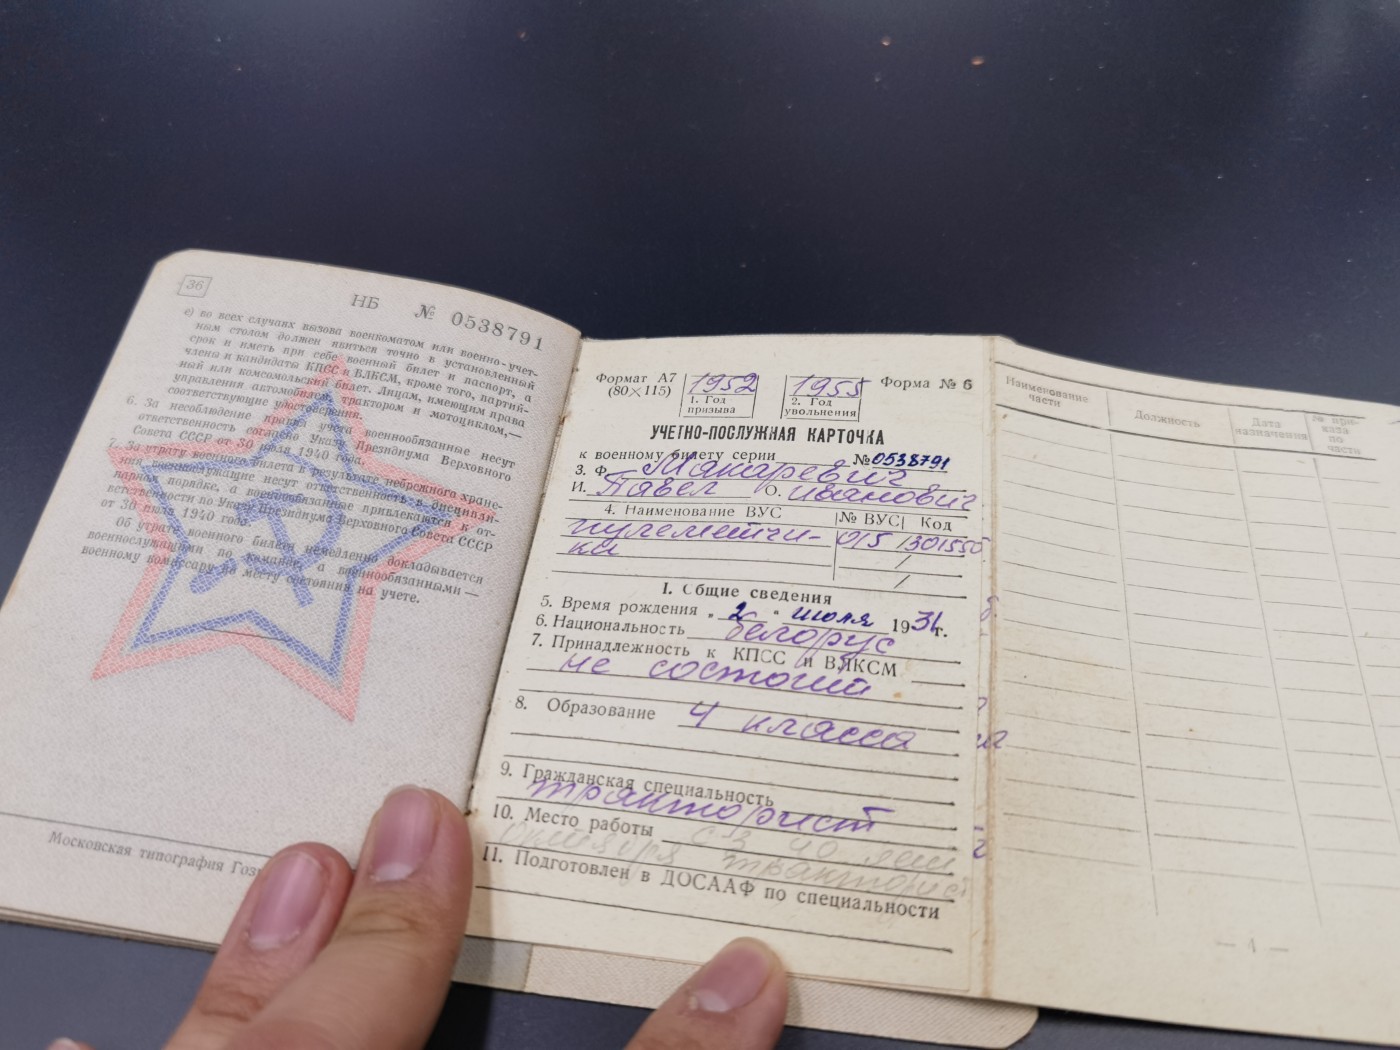 36
НБ № 0538791
е) во всех случаях вызова военкоматом или военно-учет-
ным столом должен явиться точно в установленный
срок и иметь при себе военный билет и паспорт, а
члены и кандидаты КПСС и ВЛКСМ, кроме того, партий-
ный или комсомольский билет. Лицам, имеющим права
управления автомобилем, трактором и мотоциклом,—
соответствующие удостоверения.
6. За несоблюдение правил учета военнообязанные несут
ответственность согласно Указу Президиума Верховного
Совета СССР от 30 июля 1940 года.
7. За утрату военного билета в результате небрежного хране-
ния военнослужащие несут ответственность в дисципли-
нарном порядке, а военнообязанные привлекаются к от-
ветственности по Указу Президиума Верховного Совета СССР
от 30 июля 1940 года.
Об утрате военного билета немедленно докладывается
военнослужащими по команде, а военнообязанными —
военному комиссару по месту состояния на учете.
Московская типография Гозн
Формат А7
(80×115)
1952
1. Год
призыва
1955
2. Год
увольнения
Форма № 6
УЧЕТНО-ПОСЛУЖНАЯ КАРТОЧКА
к военному билету серии № 0538791
3. Ф. Макаревич
И. Павел О. Иванович
4. Наименование ВУС № ВУС Код
пулеметчи- 015 1301550
ки
I. Общие сведения
5. Время рождения „ 2 " июля 1931 г.
6. Национальность белорус
7. Принадлежность к КПСС и ВЛКСМ
не состоит
8. Образование 4 класса
9. Гражданская специальность
тракторист
10. Место работы с-з 40 лет
Октября тракторист
11. Подготовлен в ДОСААФ по специальности
Наименование
части
Должность
Дата
назначения
№ при-
каза
по
части
— 1 —